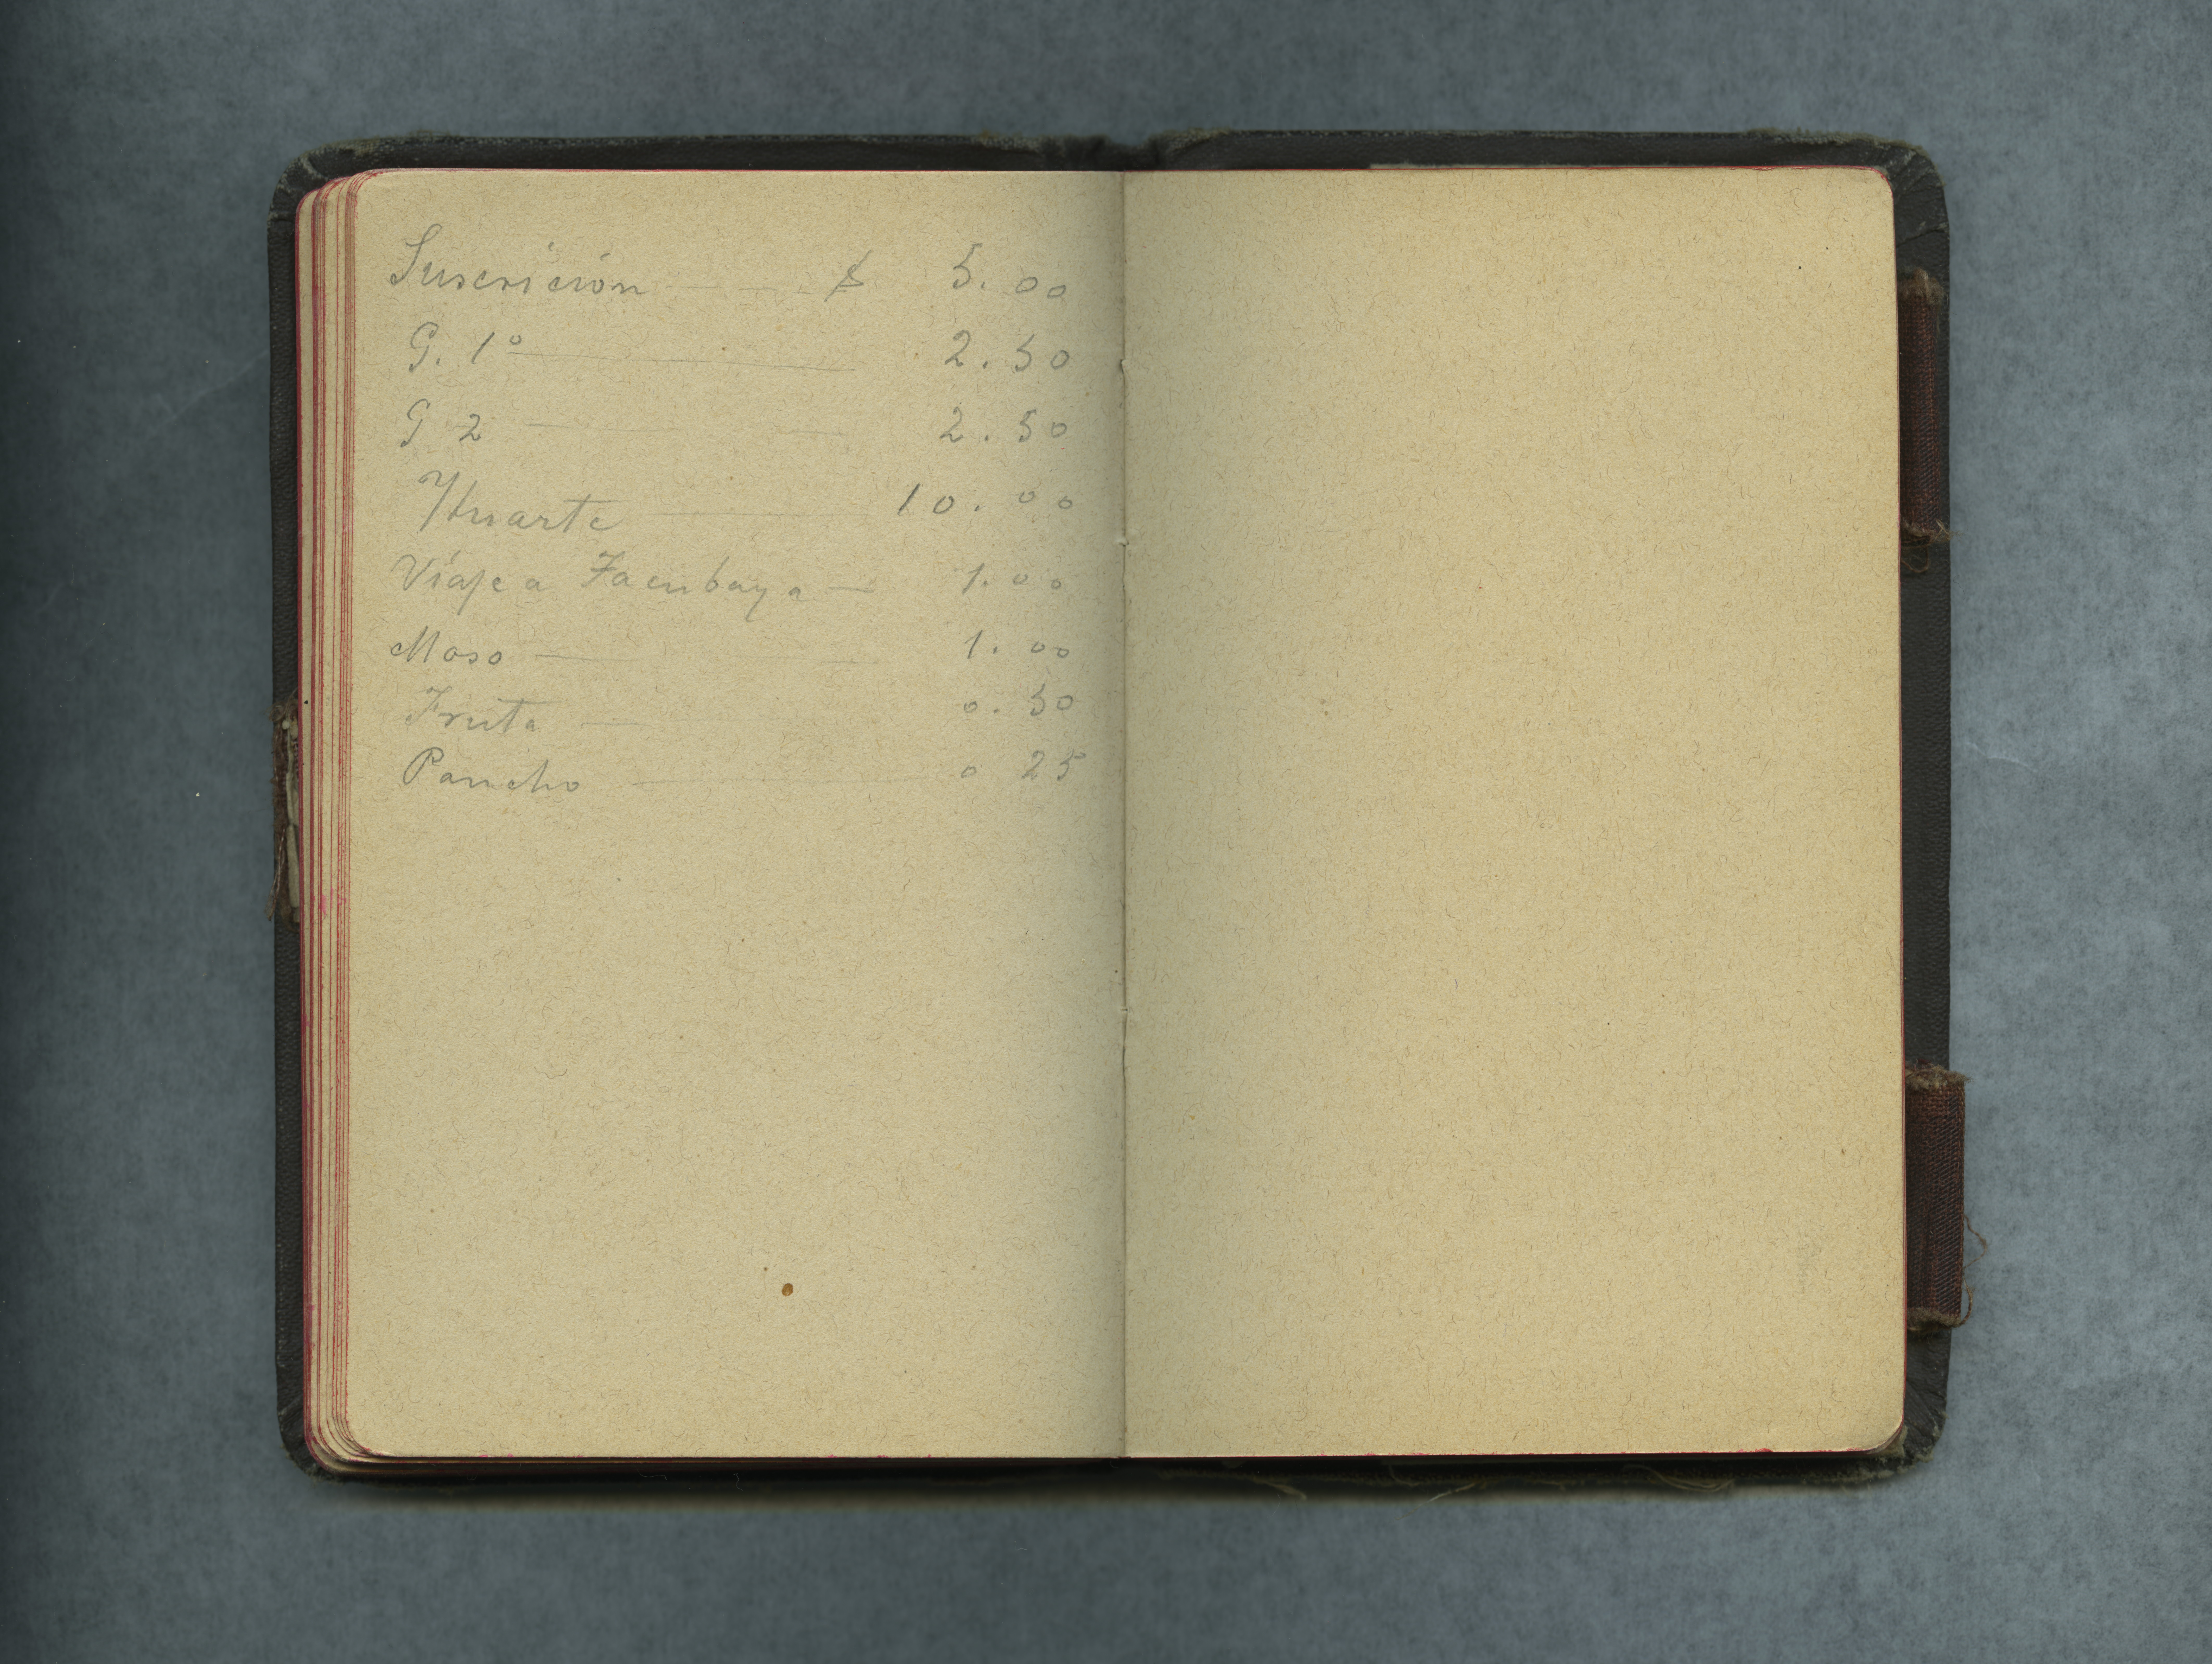 Suscrición — $ 5.00
G. 1° — 2.50
G 2 — 2.50
Huarte — 10.00
Viaje a Tacubaya — 1.00
Moso — 1.00
Fruta — 0.50
Pancho — 0 25